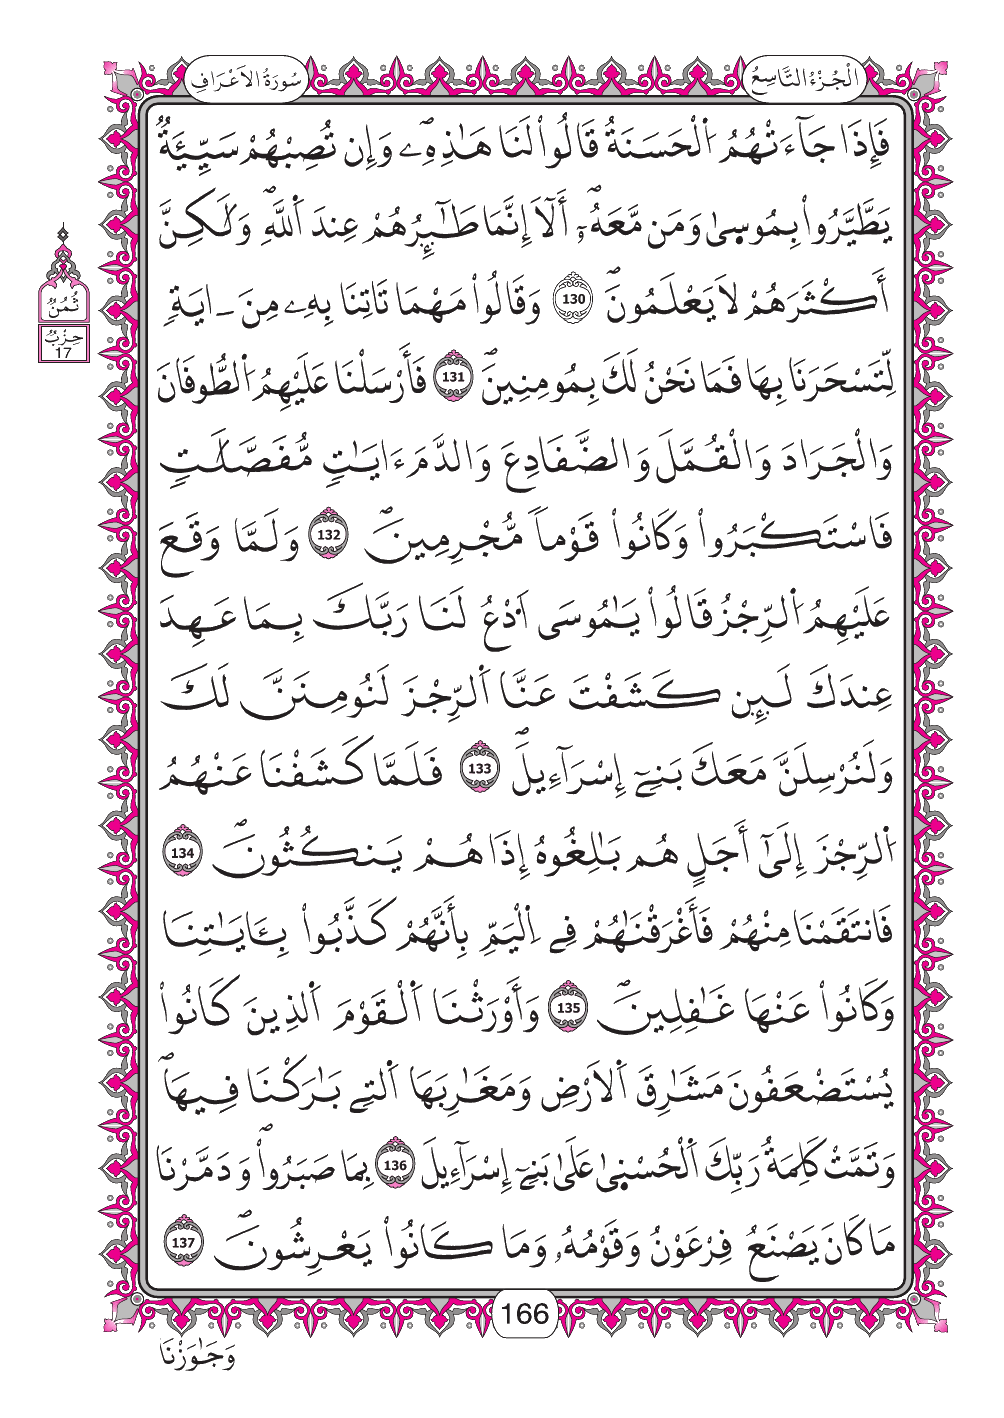 الْجُزْءُ التَّاسِعُ
سُورَةُ الَاعْرَافِ
فَإِذَا جَآءَتْهُمُ اُ۬لْحَسَنَةُ قَالُواْ لَنَا هَٰذِهِۦۖ وَإِن تُصِبْهُمْ سَيِّئَةٞ
يَطَّيَّرُواْ بِمُوسۭيٰ وَمَن مَّعَهُۥٓۖ أَلَآ إِنَّمَا طَٰٓئِرُهُمْ عِندَ اَ۬للَّهِۖ وَلَٰكِنَّ
أَكْثَرَهُمْ لَا يَعْلَمُونَۖ 130 وَقَالُواْ مَهْمَا تَاتِنَا بِهِۦ مِنَ ـايَةٖ
لِّتَسْحَرَنَا بِهَا فَمَا نَحْنُ لَكَ بِمُومِنِينَۖ 131 فَأَرْسَلْنَا عَلَيْهِمُ اُ۬لطُّوفَانَ
وَالْجَرَادَ وَالْقُمَّلَ وَالضَّفَادِعَ وَالدَّمَ ءَايَٰتٖ مُّفَصَّلَٰتٖ
فَاسْتَكْبَرُواْ وَكَانُواْ قَوْماٗ مُّجْرِمِينَۖ 132 وَلَمَّا وَقَعَ
عَلَيْهِمُ اُ۬لرِّجْزُ قَالُواْ يَٰمُوسَى اَ۟دْعُ لَنَا رَبَّكَ بِمَا عَهِدَ
عِندَكَ لَئِن كَشَفْتَ عَنَّا اَ۬لرِّجْزَ لَنُومِنَنَّ لَكَ
وَلَنُرْسِلَنَّ مَعَكَ بَنِےٓ إِسْرَآءِيلَۖ 133 فَلَمَّا كَشَفْنَا عَنْهُمُ
اُ۬لرِّجْزَ إِلَىٰٓ أَجَلٍ هُم بَٰلِغُوهُ إِذَا هُمْ يَنكُثُونَۖ 134
فَانتَقَمْنَا مِنْهُمْ فَأَغْرَقْنَٰهُمْ فِے اِ۬لْيَمِّ بِأَنَّهُمْ كَذَّبُواْ بِـَٔايَٰتِنَا
وَكَانُواْ عَنْهَا غَٰفِلِينَۖ 135 وَأَوْرَثْنَا اَ۬لْقَوْمَ اَ۬لذِينَ كَانُواْ
يُسْتَضْعَفُونَ مَشَٰرِقَ اَ۬لَارْضِ وَمَغَٰرِبَهَا اَ۬لتِے بَٰرَكْنَا فِيهَاۖ
وَتَمَّتْ كَلِمَةُ رَبِّكَ اَ۬لْحُسْنۭيٰ عَلَىٰ بَنِےٓ إِسْرَآءِيلَ 136 بِمَا صَبَرُواْۖ وَدَمَّرْنَا
مَا كَانَ يَصْنَعُ فِرْعَوْنُ وَقَوْمُهُۥ وَمَا كَانُواْ يَعْرِشُونَۖ 137
ثُمُنٌ
حِزْبٌ
17
166
وَجَٰوَزْنَا